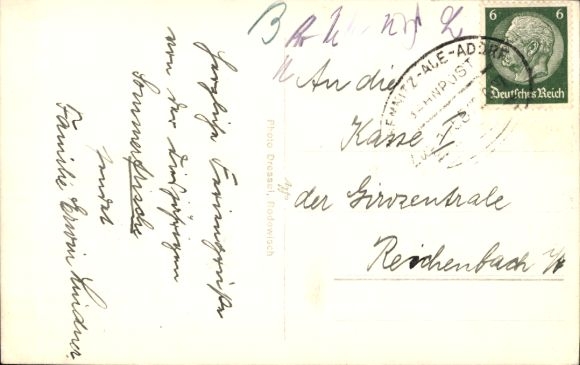 Herzliche Feriengrüße
von der diesjährigen
Sommerfrische
sendet
Familie Erwin Lindner.
Photo Dressel, Rodewisch
B
6 6
Deutsches Reich
CHEMNITZ-AUE-ADORF
BAHNPOST
An die
Kasse I
der Girozentrale
Reichenbach i/V